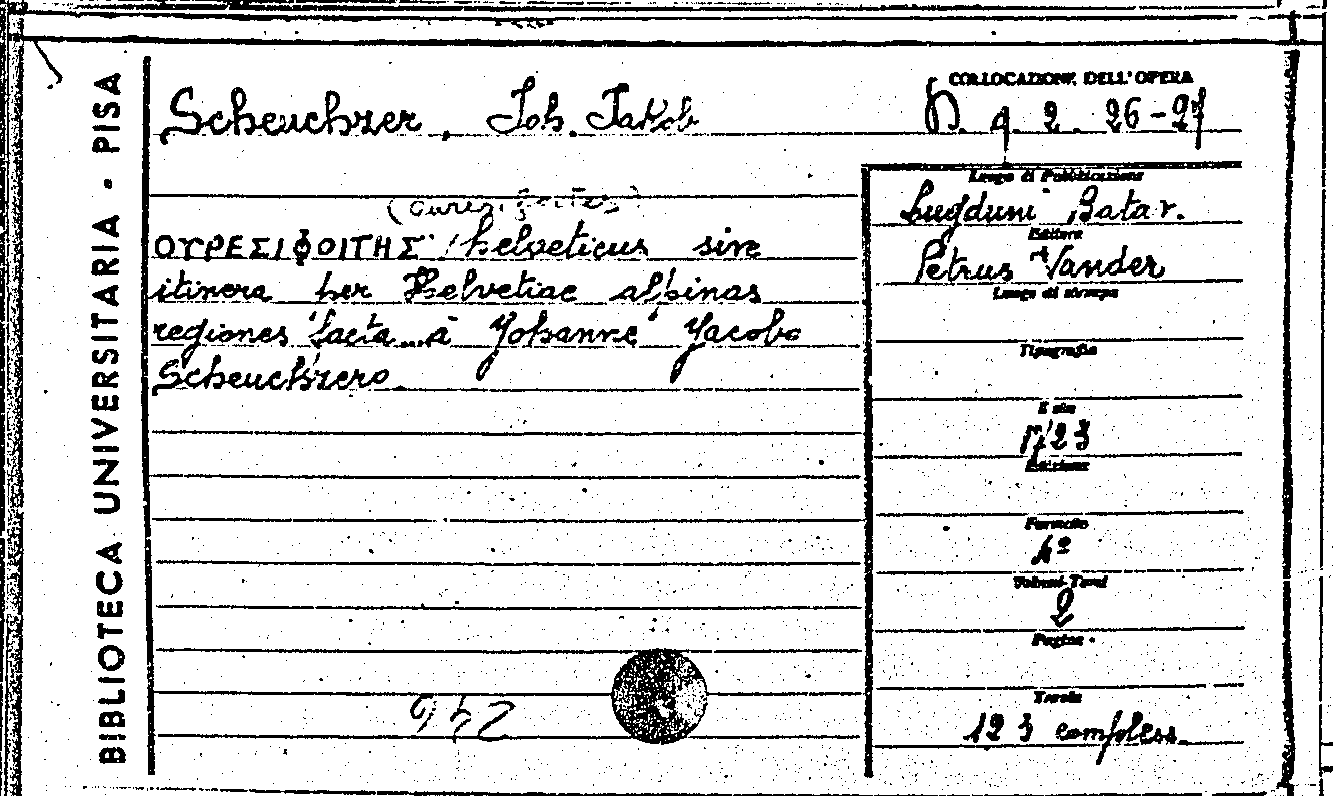 BIBLIOTECA UNIVERSITARIA - PISA
Scheuchzer, Joh. Jakob
ΟΥΡΕΣΙΦΟΙΤΗΣ helveticus sive
itinera per Helvetiae alpinas
regiones facta... a Johanne Jacobo
Scheuchzero
COLLOCAZIONE DELL'OPERA
9. 2. 26-27
Luogo di Pubblicazione
Lugduni Batav.
Editore
Petrus Vander
Luogo di stampa
Tipografia
1723
Edizione
Formato
4º
Volumi-Tomi
2
Pagine
Tavole
123 compless.